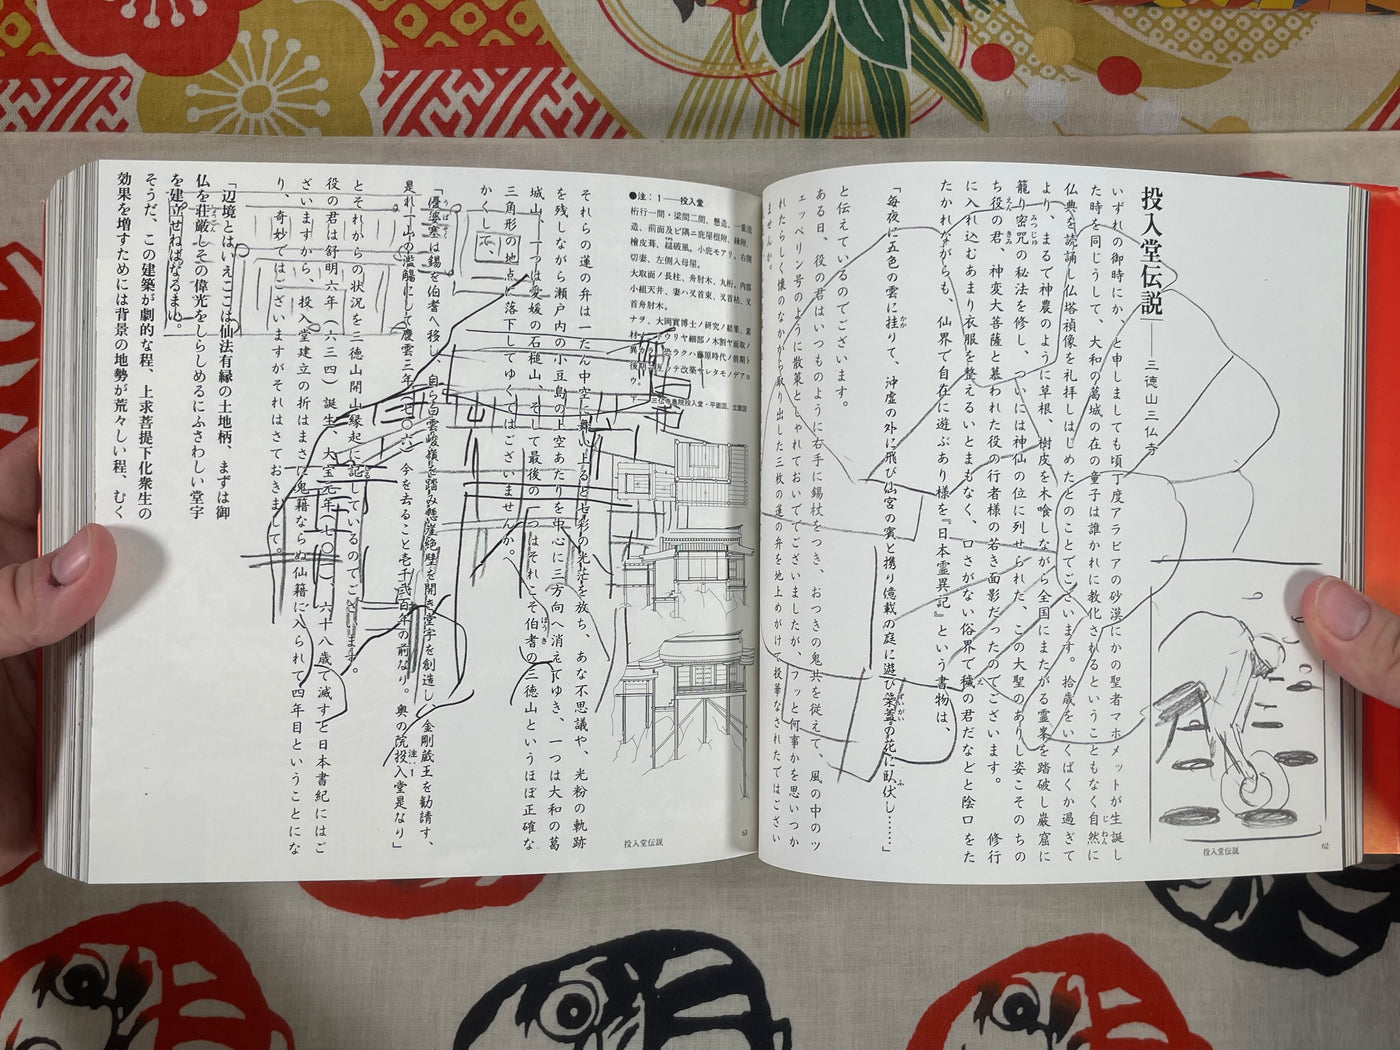 投入堂伝説——三徳山三仏寺
いずれの御時にか、と申しましても頃丁度アラビアの砂漠にかの聖者マホメットが生誕し
た時を同じうして、大和の葛城の在の童子は誰かれに教化されるということもなく自然に
仏典を読誦し仏塔禎像を礼拝しはじめたとのことでございます。拾歳をいくばくか過ぎて
より、まるで神農のように草根、樹皮を木喰しながら全国にまたがる霊峯を踏破し巌窟に
籠り密咒の秘法を修し、ついには神仙の位に列せられた、この大聖のありし姿こそのちの
ち役の君、神変大菩薩と慕われた役の行者様の若き面影だったのでございます。 修行
に入れ込むあまり衣服を整えるいとまもなく、口さがない俗界で穢の君だなどと陰口をた
たかれながらも、仙界で自在に遊ぶあり様を『日本霊異記』という書物は、
「毎夜に五色の雲に挂りて、沖虚の外に飛び仙宮の賓と携り億載の庭に遊び蘂蓋の花に臥伏し……」
と伝えているのでございます。
ある日、役の君はいつものように右手に錫杖をつき、おつきの鬼共を従えて、風の中のツ
ェッペリン号のように散策としゃれておいででございましたが、フッと何事かを思いつか
れたらしく懐のなかから取り出した三枚の蓮の弁を地上めがけて投華なされたではござい
ませんか。
62
投入堂伝説
●注：1——投入堂
桁行一間・梁間二間、懸造、一重流
造、前面及ビ隅ニ庇屋根附、縁附、
檜皮葺、縋破風。小庇モアリ、右側
切妻、左側入母屋。
大取面ノ長柱、舟肘木、丸桁。内部
小組天井、妻ハ叉首束、叉首枯、叉
首舟肘木。
ナヲ、大岡實博士ノ研究ノ結果、素
後期ニ亘ッテ改築サレタモノデアロ
ウ。
下——三仏寺奥院投入堂・平面図、立面図
それらの蓮の弁は一たん中空に舞い上ると七彩の光芒を放ち、あな不思議や、光粉の軌跡
を残しながら瀬戸内の小豆島の上空あたりを中心に三方向へ消えてゆき、一つは大和の葛
城山、一つは愛媛の石槌山、そして最後の一つはそれこそ伯耆の三徳山というほぼ正確な
三角形の地点に落下してゆくではございませんか。
かくして、
「優婆塞は錫を伯耆へ移し、自ら白雲峻嶺を踏み懸崖絶壁を開き堂宇を創造し、金剛蔵王を勧請す、
是れ一山の濫觴にして慶雲三年（七〇六）今を去ること壱千弐百年の前なり。奥の院投入堂是なり」
注・1
とそれからの状況を三徳山開山縁起に記しているのでございます。
役の君は舒明六年（六三四）誕生、大宝元年（七〇一）、六十八歳で滅すと日本書紀にはご
ざいますから、投入堂建立の折はまさに鬼籍ならぬ仙籍に入られて四年目ということにな
り、奇妙ではございますがそれはさておきまして。
「辺境とはいえここは仙法有縁の土地柄、まずは御
仏を荘厳しその偉光をしらしめるにふさわしい堂宇
を建立せねばなるまい。
そうだ、この建築が劇的な程、上求菩提下化衆生の
効果を増すためには背景の地勢が荒々しい程、むく
63
投入堂伝説